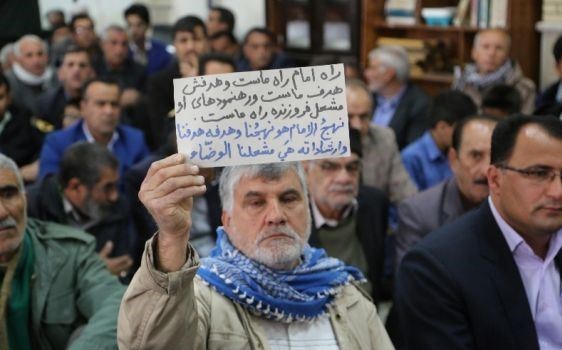 راه امام راه ماست و هدفش
هدف ماست و رهنمودهای او
مشعل فروزنده راه ماست.
نهج الامام هو نهجنا وهدفه هدفنا
وارشاداته هي مشعلنا الوضّاء